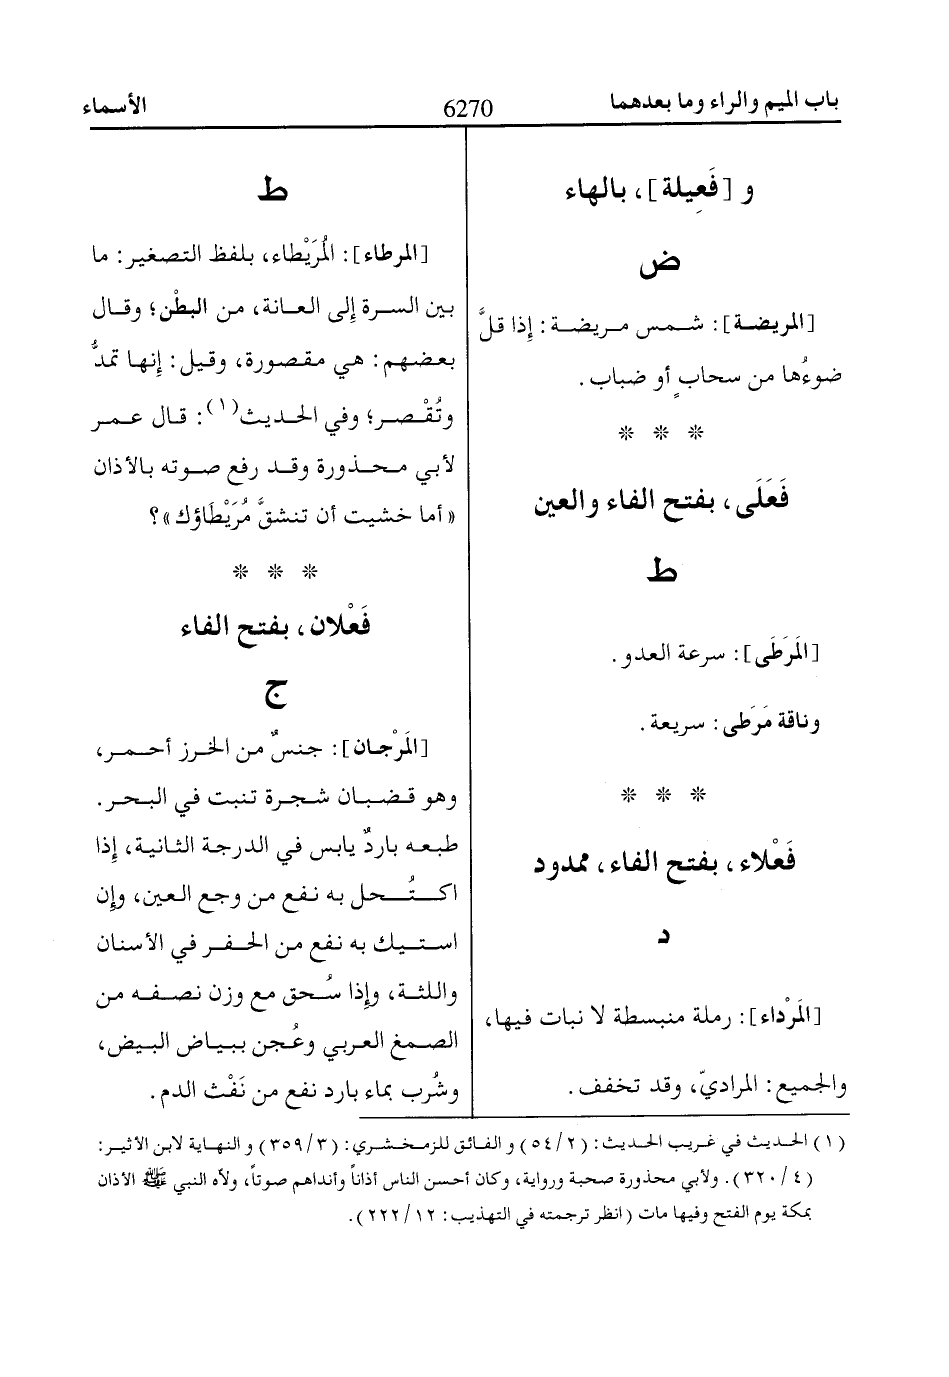 باب الميم والراء وما بعدهما
6270
الأسماء
و [فَعِيلة]، بالهاء
ض
[المريضة]: شمس مريضة: إِذا قلَّ
ضوءُها من سحابٍ أو ضباب.
* * *
فَعَلَى، بفتح الفاء والعين
ط
[المَرَطَى]: سرعة العدو.
وناقة مَرَطى: سريعة.
* * *
فَعْلاء، بفتح الفاء، ممدود
د
[المَرْداء]: رملة منبسطة لا نبات فيها،
والجميع: المراديّ، وقد تخفف.
ط
[المرطاء]: المُرَيْطاء، بلفظ التصغير: ما
بين السرة إِلى العانة، من البطْن؛ وقال
بعضهم: هي مقصورة، وقيل: إِنها تمدُّ
وتُقْصر؛ وفي الحديث(١): قال عمر
لأبي محذورة وقد رفع صوته بالأذان
«أما خشيت أن تنشقَّ مُرَيْطَاؤك»؟
* * *
فَعْلان، بفتح الفاء
ج
[المَرْجان]: جنسٌ من الخرز أحمر،
وهو قضبان شجرة تنبت في البحر.
طبعه باردٌ يابس في الدرجة الثانية، إِذا
اكتُحل به نفع من وجع العين، وإِن
استيك به نفع من الحفر في الأسنان
واللثة، وإِذا سُحق مع وزن نصفه من
الصمغ العربي وعُجن ببياض البيض،
وشُرب بماء بارد نفع من نَفْث الدم.
(١) الحديث في غريب الحديث: (٥٤/٢) و الفائق للزمخشري: (٣٥٩/٣) و النهاية لابن الأثير:
(٣٢٠/٤). ولأبي محذورة صحبة ورواية، وكان أحسن الناس أذاناً وأنداهم صوتاً، ولاه النبي ﷺ الأذان
بمكة يوم الفتح وفيها مات (انظر ترجمته في التهذيب: ٢٢٢/١٢).